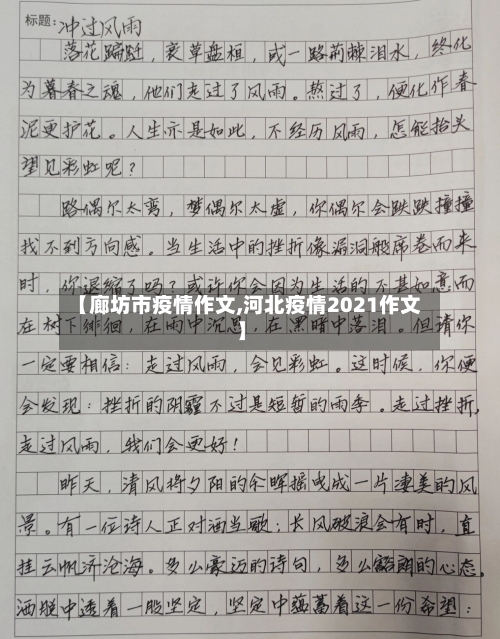 标题：冲过风雨
落花蹁跹，衰草盘桓，或一路荆棘泪水，终化
为暮春之魂，他们走过了风雨。熬过了，便化作春
泥更护花。人生亦是如此，不经历风雨，怎能抬头
望见彩虹呢？
路偶尔太弯，梦偶尔太虚，你偶尔会跌跌撞撞
找不到方向感。当生活中的挫折像漏洞般席卷而来
时，你退缩了吗？或许你会因为生活的不甚如意而
【廊坊市疫情作文,河北疫情2021作文
】
在树下徘徊，在雨中沉思，在黑暗中落泪。但请你
一定要相信：走过风雨，会见彩虹。这时候，你便
会发现：挫折的阴霾不过是短暂的雨季。走过挫折，
走过风雨，我们会更好！
昨天，清风将夕阳的余晖摇曳成一片凄美的风
景。有一位诗人正对酒当歌：长风破浪会有时，直
挂云帆济沧海。多么豪迈的诗句，多么豁朗的心态。
洒脱中透着一股坚定，坚定中蕴蓄着这一份希望：